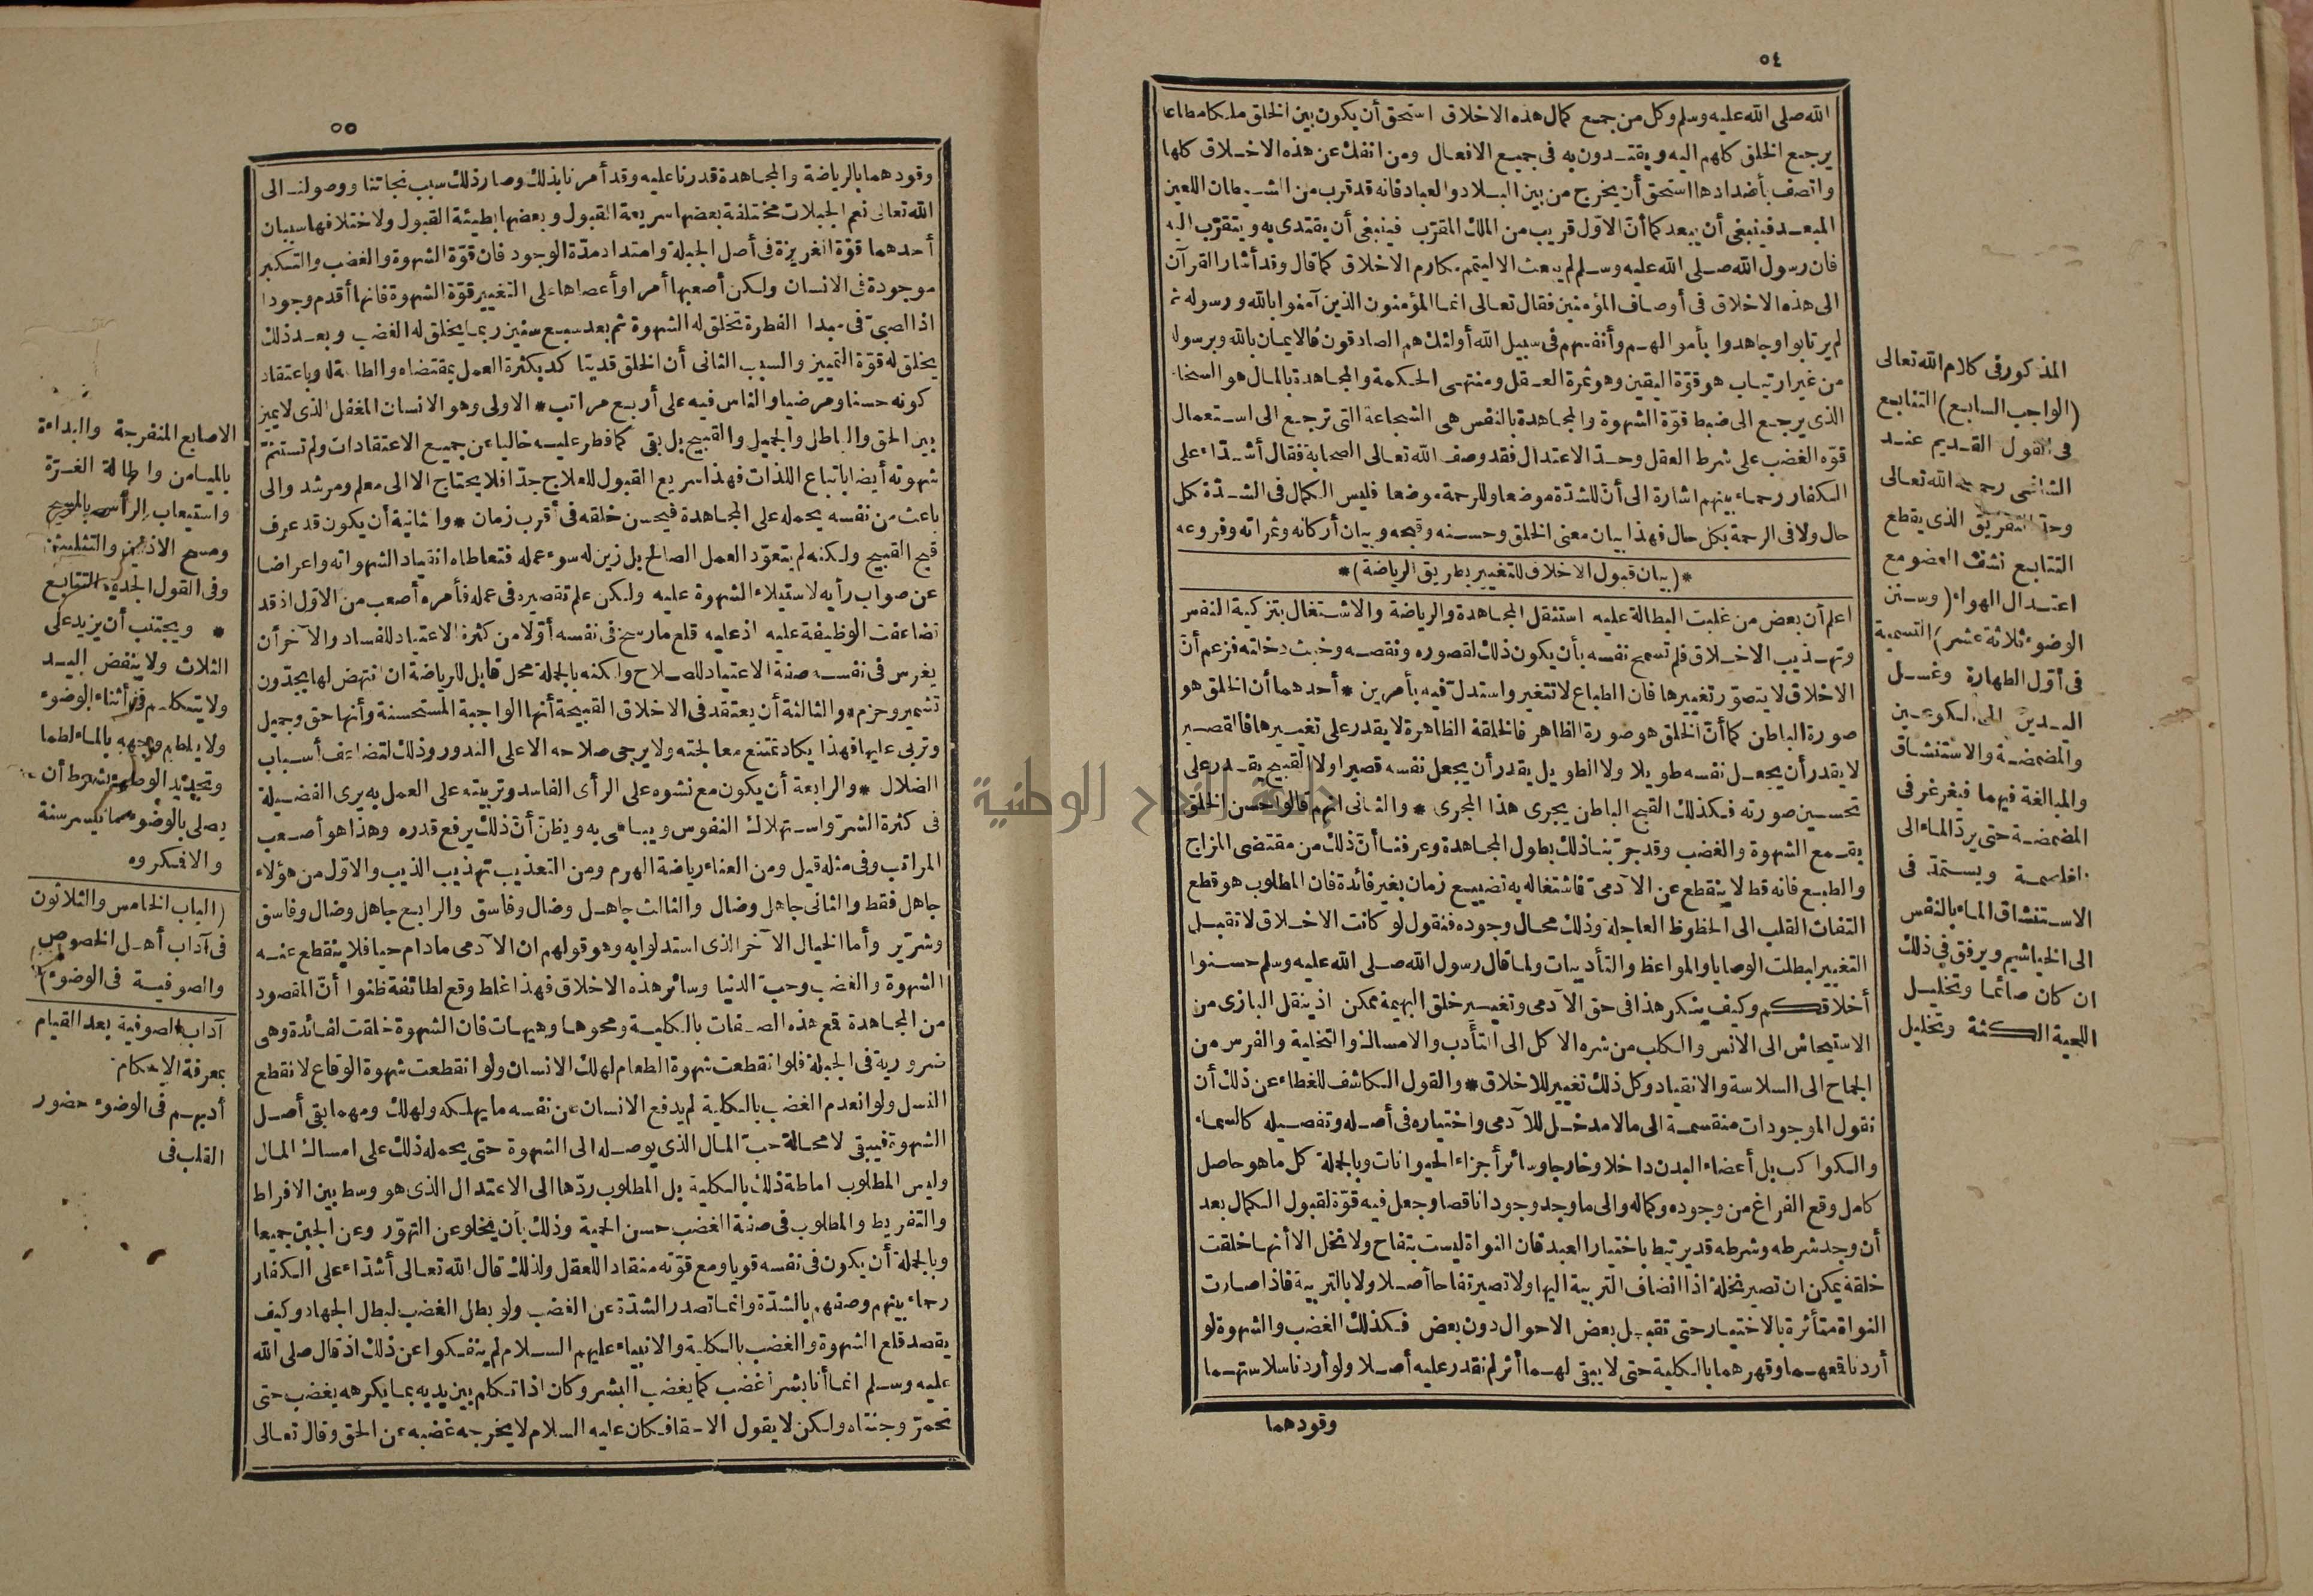 ٥٤
الله صلى الله عليه وسلم وكل من جمع كمال هذه الاخلاق استحق أن يكون بين الخلق ملكا مطاعا
يرجع الخلق كلهم اليه ويقتدون به فى جميع الافعال ومن انفك عن هذه الاخلاق كلها
واتصف بأضدادها استحق أن يخرج من بين البلاد والعباد فانه قد قرب من الشيطان اللعين
المبعد فينبغى أن يبعد كما أنّ الاوّل قريب من الملك المقرّب فينبغى أن يقتدى به ويتقرّب اليه
فان رسول الله صلى الله عليه وسلم لم يبعث الا ليتمم مكارم الاخلاق كما قال وقد أشار القرآن
الى هذه الاخلاق فى أوصاف المؤمنين فقال تعالى انما المؤمنون الذين آمنوا بالله ورسوله ثم
لم يرتابوا وجاهدوا بأموالهم وأنفسهم فى سبيل الله أولئك هم الصادقون فالايمان بالله وبرسوله
من غير ارتياب هو قوّة اليقين وهو ثمرة العقل ومنتهى الحكمة والمجاهدة بالمال هو السخاء
الذى يرجع الى ضبط قوّة الشهوة والمجاهدة بالنفس هى الشجاعة التى ترجع الى استعمال
قوّة الغضب على شرط العقل وحدّ الاعتدال فقد وصف الله تعالى الصحابة فقال أشدّاء على
الكفار رحماء بينهم اشارة الى أنّ للشدّة موضعا وللرحمة موضعا فليس الكمال فى الشدّة بكل
حال ولا فى الرحمة بكل حال فهذا بيان معنى الخلق وحسنه وقبحه وبيان أركانه وثمراته وفروعه
*(بيان قبول الاخلاق للتغيير بطريق الرياضة)*
اعلم أن بعض من غلبت البطالة عليه استثقل المجاهدة والرياضة والاشتغال بتزكية النفس
وتهذيب الاخلاق فلم تسمح نفسه بأن يكون ذلك لقصوره ونقصه وخبث دخلته فزعم أنّ
الاخلاق لا يتصوّر تغييرها فان الطباع لا تتغير واستدلّ فيه بأمرين * أحدهما أن الخلق هو
صورة الباطن كما أنّ الخلق هو صورة الظاهر فالخلقة الظاهرة لا يقدر على تغييرها فالقصير
لا يقدر أن يجعل نفسه طويلا ولا الطويل يقدر أن يجعل نفسه قصيرا ولا القبيح يقدر على
تحسين صورته فكذلك القبح الباطن يجرى هذا المجرى * والثانى انهم قالوا حسن الخلق
بقمع الشهوة والغضب وقد جرّبنا ذلك بطول المجاهدة وعرفنا أنّ ذلك من مقتضى المزاج
والطبع فانه قط لا ينقطع عن الآدمىّ فاشتغاله به تضييع زمان بغير فائدة فان المطلوب هو قطع
التفات القلب الى الحظوظ العاجلة وذلك محال وجوده فنقول لو كانت الاخلاق لا تقبل
التغيير لبطلت الوصايا والمواعظ والتأديبات ولما قال رسول الله صلى الله عليه وسلم حسنوا
أخلاقكم وكيف ينكر هذا فى حق الآدمى وتغيير خلق البهيمة ممكن اذ ينقل البازى من
الاستيحاش الى الانس والكلب من شره الاكل الى التأدب والامساك والتخلية والفرس من
الجماح الى السلاسة والانقياد وكل ذلك تغيير للاخلاق * والقول الكاشف للغطاء عن ذلك أن
نقول الموجودات منقسمة الى مالا مدخل للآدمى واختياره فى أصله وتفصيله كالسماء
والكواكب بل أعضاء البدن داخلا وخارجا وسائر أجزاء الحيوانات وبالجملة كل ما هو حاصل
كامل وقع الفراغ من وجوده وكماله والى ما وجد وجودا ناقصا وجعل فيه قوّة لقبول الكمال بعد
أن وجد شرطه وشرطه قد يرتبط باختيار العبد فان النواة ليست بتفاح ولا نخل الا أنها خلقت
خلقة يمكن ان تصير نخلة اذا انضاف التربية اليها ولا تصير تفاحا أصلا ولا بالتربية فاذا صارت
النواة متأثرة بالاختيار حتى تقبل بعض الاحوال دون بعض فكذلك الغضب والشهوة لو
أردنا قمعهما وقهرهما بالكلية حتى لا يبقى لهما أثر لم نقدر عليه أصلا ولو أردنا سلاستهما
وقودهما
المذكور فى كلام الله تعالى
(الواجب السابع) التتابع
فى القول القديم عند
الشافعى رحمه الله تعالى
وحدّ التفريق الذى يقطع
التتابع نشف العضو مع
اعتدال الهواء (وسنن
الوضوء ثلاثة عشر) التسمية
فى أوّل الطهارة وغسل
اليدين الى الكوعين
والمضمضة والاستنشاق
والمبالغة فيهما فيغرغر فى
المضمضة حتى يردّ الماء الى
الغلصمة ويستمدّ فى
الاستنشاق الماء بالنفس
الى الخياشيم ويرفق فى ذلك
ان كان صائما وتخليل
اللحية الكثة وتخليل
٥٥
وقودهما بالرياضة والمجاهدة قدرنا عليه وقد أمرنا بذلك وصار ذلك سبب نجاتنا ووصولنا الى
الله تعالى نعم الجبلات مختلفة بعضها سريعة القبول وبعضها بطيئة القبول ولاختلافها سببان
أحدهما قوّة الغريزة فى أصل الجبلة وامتداد مدّة الوجود فان قوّة الشهوة والغضب والتكبر
موجودة فى الانسان ولكن أصعبها أمرا وأعصاها على التغيير قوّة الشهوة فانها أقدم وجودا
اذ الصبىّ فى مبدا الفطرة تخلق له الشهوة ثم بعد سبع سنين ربما يخلق له الغضب وبعد ذلك
يخلق له قوّة التمييز والسبب الثانى أن الخلق قد يتأكد بكثرة العمل بمقتضاه والطاعة له وباعتقاد
كونه حسنا ومرضيا والناس فيه على أربع مراتب * الاولى وهو الانسان المغفل الذى لا يميز
بين الحق والباطل والجميل والقبيح بل بقى كما فطر عليه خاليا عن جميع الاعتقادات ولم تستتم
شهوته أيضا باتباع اللذات فهذا سريع القبول للعلاج جدّا فلا يحتاج الا الى معلم ومرشد والى
باعث من نفسه يحمله على المجاهدة فيحسن خلقه فى أقرب زمان * والثانية أن يكون قد عرف
قبح القبيح ولكنه لم يتعوّد العمل الصالح بل زين له سوء عمله فتعاطاه انقياد الشهواته واعراضا
عن صواب رأيه لاستيلاء الشهوة عليه ولكن علم تقصيره فى عمله فأمره أصعب من الاوّل اذ قد
تضاعفت الوظيفة عليه اذ عليه قلع ما رسخ فى نفسه أوّلا من كثرة الاعتياد للفساد والآخر أن
يغرس فى نفسه صفة الاعتياد للصلاح ولكنه بالجملة محل قابل للرياضة ان انتهض لها بجدّ وتشمير
وحزم * والثالثة أن يعتقد فى الاخلاق القبيحة أنها الواجبة المستحسنة وأنها حق وجميل
وتربى عليها فهذا يكاد تمتنع معالجته ولا يرجى صلاحه الا على الندور وذلك لتضاعف أسباب
الضلال * والرابعة أن يكون مع نشوه على الرأى الفاسد وتربيته على العمل به يرى الفضيلة
فى كثرة الشرّ واستهلاك النفوس ويباهى به ويظنّ أنّ ذلك يرفع قدره وهذا هو أصعب
المراتب وفى مثله قيل ومن العناء رياضة الهرم ومن التعذيب تهذيب الذيب والاوّل من هؤلاء
جاهل فقط والثانى جاهل وضال والثالث جاهل وضال وفاسق والرابع جاهل وضال وفاسق
وشرّير وأما الخيال الآخر الذى استدلوا به وهو قولهم ان الآدمى مادام حيا فلا ينقطع عنه
الشهوة والغضب وحبّ الدنيا وسائر هذه الاخلاق فهذا غلط وقع لطائفة ظنوا أنّ المقصود
من المجاهدة قمع هذه الصفات بالكلية ومحوها وهيهات فان الشهوة خلقت لفائدة وهى
ضرورية فى الجبلة فلو انقطعت شهوة الطعام لهلك الانسان ولو انقطعت شهوة الوقاع لانقطع
النسل ولو انعدم الغضب بالكلية لم يدفع الانسان عن نفسه ما يهلكه ولهلك ومهما بقى أصل
الشهوة فيبقى لا محالة حبّ المال الذى يوصله الى الشهوة حتى يحمله ذلك على امساك المال
وليس المطلوب اماطة ذلك بالكلية بل المطلوب ردّها الى الاعتدال الذى هو وسط بين الافراط
والتفريط والمطلوب فى صفة الغضب حسن الحمية وذلك بأن يخلو عن التهوّر وعن الجبن جميعا
وبالجملة أن يكون فى نفسه قويا ومع قوّته منقادا للعقل ولذلك قال الله تعالى أشدّاء على الكفار
رحماء بينهم وصفهم بالشدّة وانما تصدر الشدّة عن الغضب ولو بطل الغضب لبطل الجهاد وكيف
يقصد قلع الشهوة والغضب بالكلية والانبياء عليهم السلام لم ينفكوا عن ذلك اذ قال صلى الله
عليه وسلم انما أنا بشر أغضب كما يغضب البشر وكان اذا تكلم بين يديه بما يكرهه يغضب حتى
تحمرّ وجنتاه ولكن لا يقول الا حقا فكان عليه السلام لا يخرجه غضبه عن الحق وقال تعالى
الاصابع المنفرجة والبداءة
بالميامن واطالة الغرّة
واستيعاب الرأس بالمسح
ومسح الاذنين والتثليث
وفى القول الجديد التتابع
* ويجتنب أن يزيد على
الثلاث ولا ينفض اليد
ولا يتكلم فى أثناء الوضوء
ولا يلطم وجهه بالماء لطما
وتجديد الوضوء بشرط أن
يصلى بالوضوء ما تيسر سنة
والا فمكروه
(الباب الخامس والثلاثون
فى آداب أهل الخصوص
والصوفية فى الوضوء)
آداب الصوفية بعد القيام
بمعرفة الاحكام
أدبهم فى الوضوء حضور
القلب فى
جامعة النجاح الوطنية